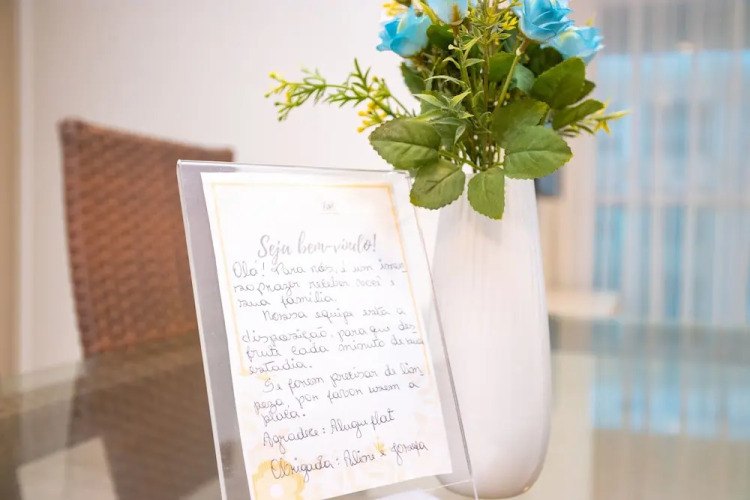 Seja bem-vindo!
Olá! Para nós, é um imen-
so prazer receber você e
sua família.
Nossa equipe está a
disposição, para que des-
frute cada minuto de sua
estadia.
Se forem precisar de lim-
peza, por favor usem a
placa.
Agradece: Alugu flat
Obrigada: Aline e